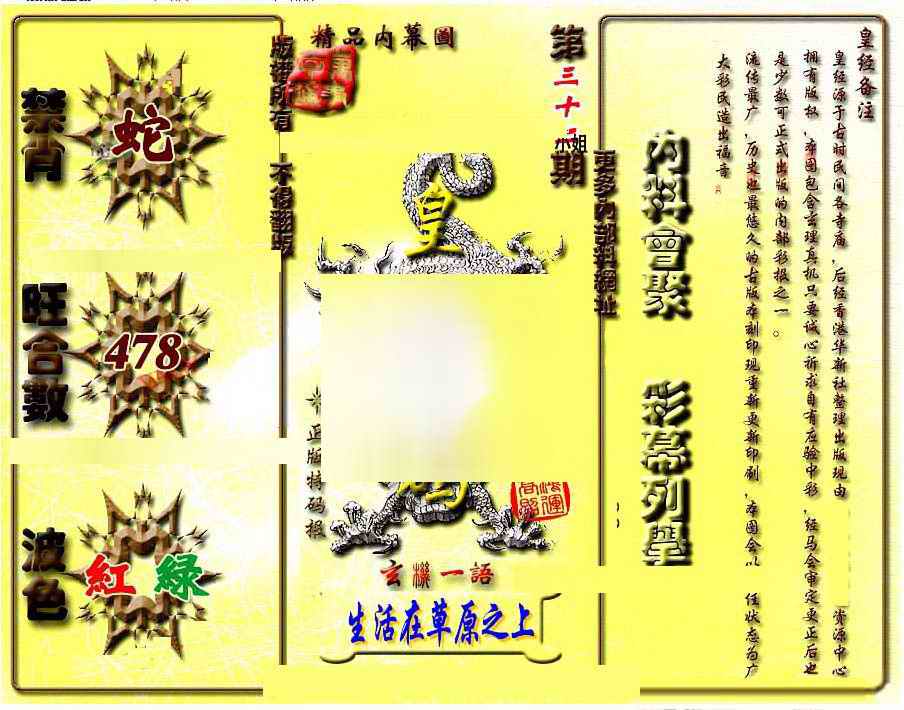 皇经备注
皇经源于古时民间各寺庙，后经香港华新社整理出版现由
资源中心
拥有版权，本图包含玄理真机只要诚心祈求自有应验中彩，经马会审定更正后也
是少数可正式出版的内部彩报之一。
流传最广，历史也最悠久的古版本刻印现重新更新印刷，本图会以
任状态为广
大彩民造出福音
內料會聚
彩幕列
更多內部料網址
第三十
期
小姐
精品内幕圖
皇
版權所有
不得翻版
正版特码报
玄機一語
生活在草原之上
禁肖
蛇
旺合數
478
波色
紅 綠